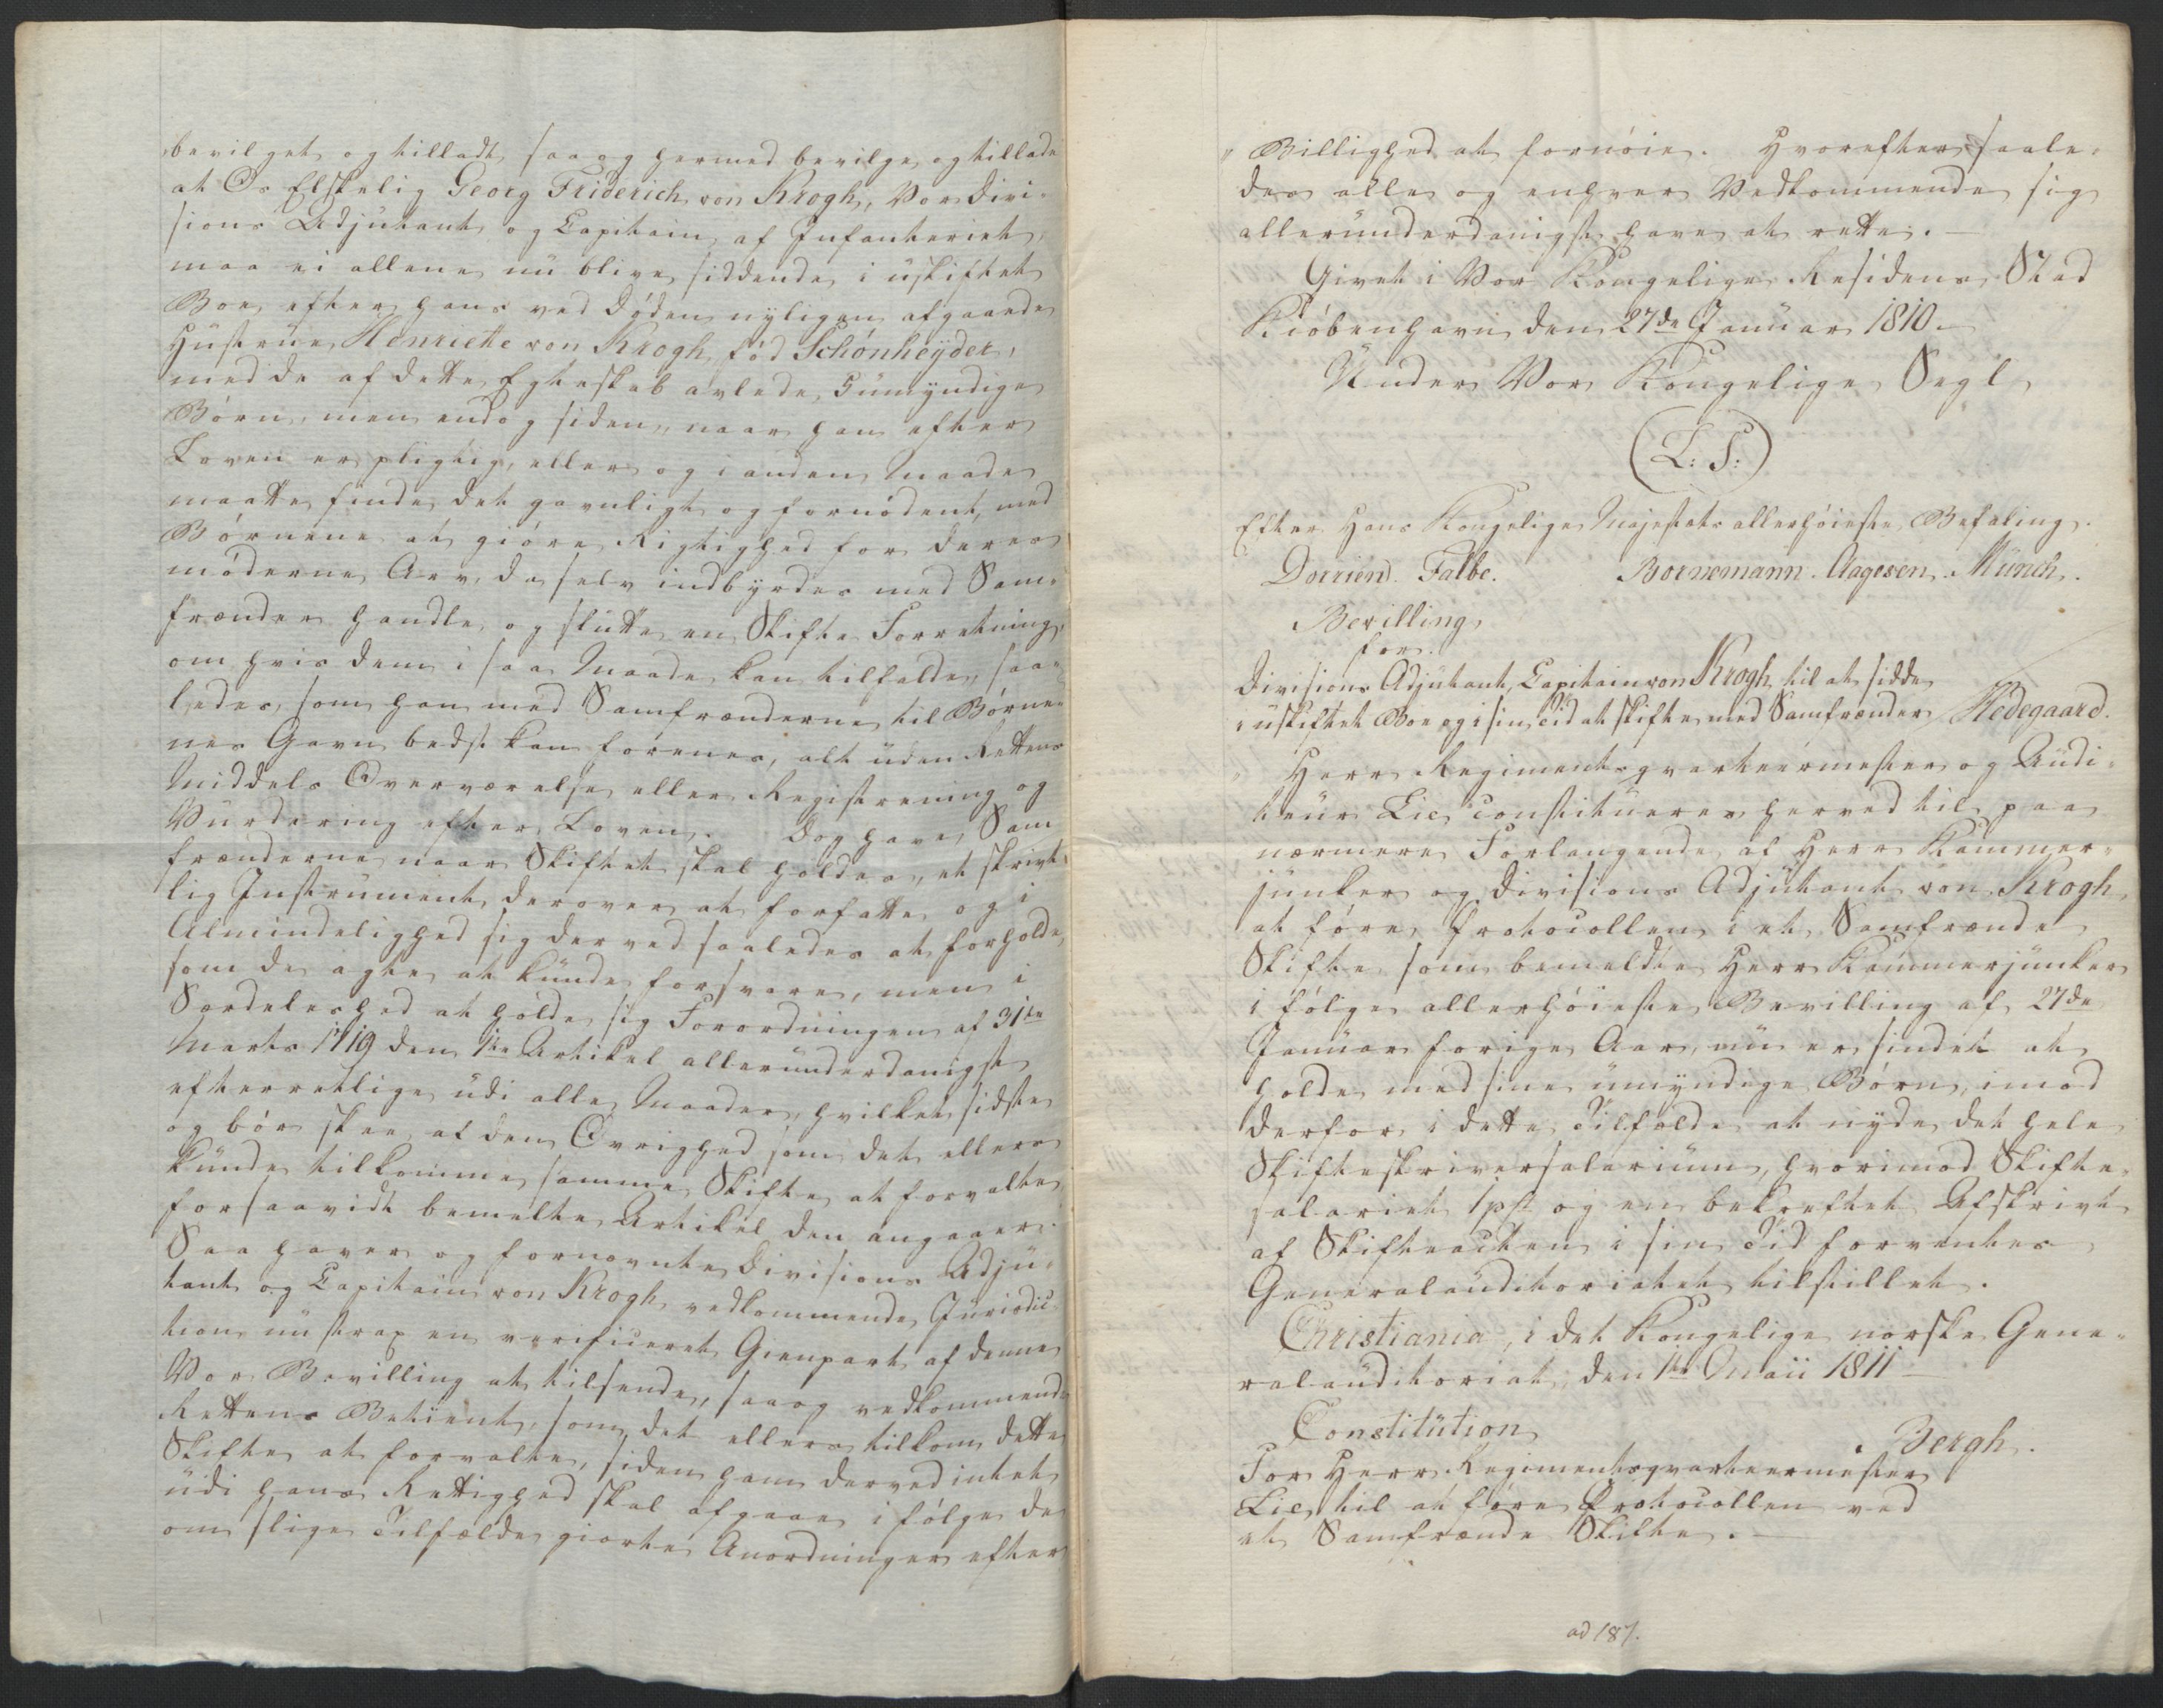 bevilget og tilladt, saa og hermed bevilge og tillade
at Os Elskelig Georg Friderich von Krogh, Vor Divi-
sions Adjutant og Capitain af Infanteriet,
maa ei allene nu blive siddende i uskiftet
Boe efter hans ved Døden nyligen afgaaede
Hustrue Henriette von Krogh, fød Schønheyder,
med de af dette Egteskab avlede 5 umyndige
Børn, men endog siden, naar han efter
Loven er pligtig, eller og i anden Maade
maatte finde det gavnligt og fornødent, med
Børnene at giøre Rigtighed for deres
møderne Arv, da selv indbyrdes med Sam-
frænder handle og slutte en Skifte Forretning,
om hvis dem i saa Maade kan tilfalde, saa-
ledes, som han med Samfrænderne til Børne-
nes Gavn bedst kan forenes, alt uden Rettens
Middels Overværelse eller Registrering og
Vurdering efter Loven. Dog have Sam
frænderne naar Skiftet skal holdes, et skrivt-
lig Instrument derover at forfatte og i
Almindelighed sig derved saaledes at forholde,
som de agte at kunde forsvare, men i
Særdeleshed at holde sig Forordningen af 31te
Marts 1719 den 1te Artikel allerunderdanigst
efterrettlige udi alle Maader, hvilket sidste
og bør skee af den Øvrighed som det ellers
kunde tilkomme samme Skifte at forvalte
forsaavidt bemelte Artikel den angaaer.
Saa haver og fornævnte Divisions Adju-
tant og Capitain von Krogh vedkommende Jurisdic-
tion nu strax en verificeret Gienpart af denne
Vor Bevilling at tilsende, saa og vedkommende
Rettens Betient, som det ellers tilkom dette
Skifte at forvalte, siden ham derved intet
udi hans Rettighed skal afgaae i følge de
om slige Tilfælde giorte Anordninger efter
" Billighed at fornøie. Hvorefter saale-
des alle og enhver Vedkommende sig
allerunderdanigst have at rette. —
Givet i Vor Kongelige Residens Stad
Kiøbenhavn den 27de Januar 1810 —
Under Vor Kongelige Segl
(L: S:)
Efter Hans Kongelige Majestæts allerhøieste Befaling.
Dorrien. Falbe. Bornemann. Aagesen. Münch.
Bevilling
for
Divisions Adjutant, Capitain von Krogh til at sidde
i uskiftet Boe og i sin Tid at skifte med Samfrænder / Hedegaard.
" Herr Regimentsqvarteermester og Audi-
teur Lie constitueres herved til paa
nærmere Forlangende af Herr Kammer-
junker og Divisions Adjutant von Krogh
at føre Protocollen i et Samfrænde
Skifte som bemeldte Herr Kammerjunker
i følge allerhøieste Bevilling af 27de
Januar forige Aar, nu er sindet at
holde med sine umyndige Børn, imod
derfor i dette Tilfælde at nyde det hele
Skifteskriversalarium, hvorimod Skifte-
salariet 1 pst og en bekræftet Afskrivt
af Skifteacten i sin Tid forventes
Generalauditoriatet tilstillet.
Christiania, i det Kongelige norske Gene-
ralauditoriat, den 1te Maii 1811 —
Constitution Bergh.
For Herr Regimentsqvarteermester
Lie til at føre Protocollen ved
et Samfrænde Skifte. —
ad 187.